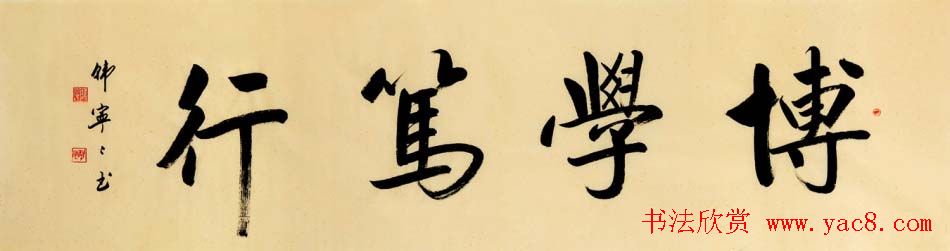 博學篤行
韩寧〻书
书法欣赏 www.yac8.com